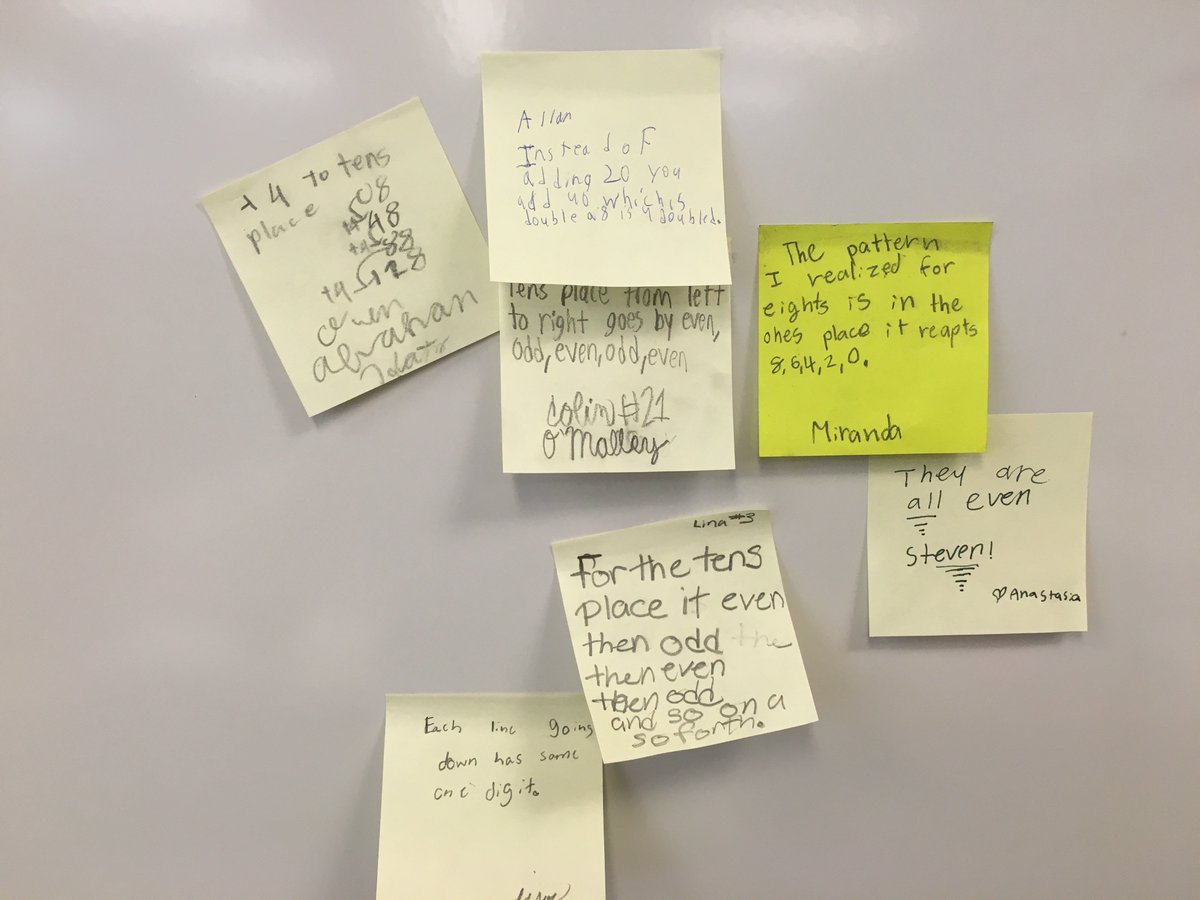 + 4 to tens
place 08
+4 48
+4 88
+4 128
Owen
abrahan
Allan
Instead oF
adding 20 you
add 40 which is
double a 8 is 4 doubled.
tens place from left
to right goes by even,
odd, even, odd, even
Colin #21
O'Malley
The pattern
I realized for
eights is in the
ones place it reapts
8,6,4,2,0.
Miranda
They are
all even
Steven!
♡Anastasia
Lina #3
For the tens
place it even
then odd the
then even
then odd
and so on a
so forth.
Each line going
down has same
one digit.